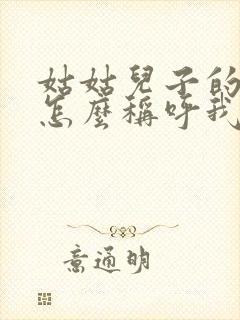 姑姑兒子的
怎麼稱呼我
意通明